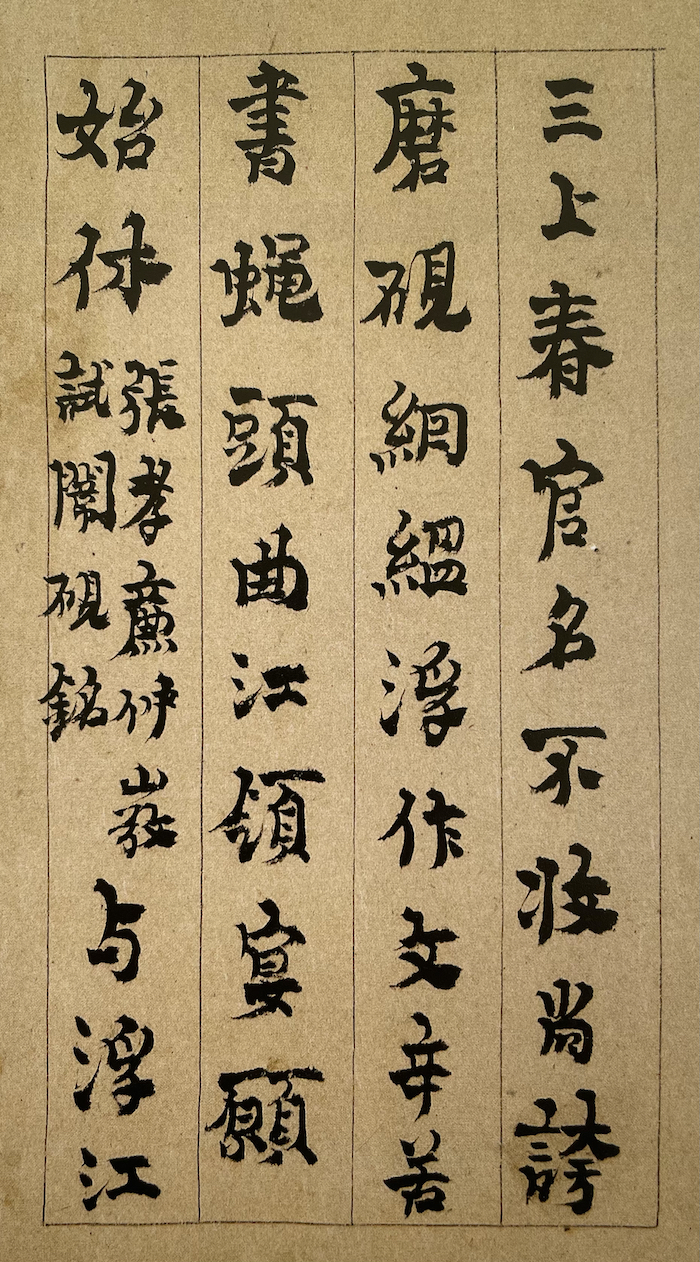 三上春官名不收尚誇
磨硯絪縕浮作文辛苦
書蝇頭曲江領宴願
始休
張孝廉伊巖
試闈硯銘
与浮江